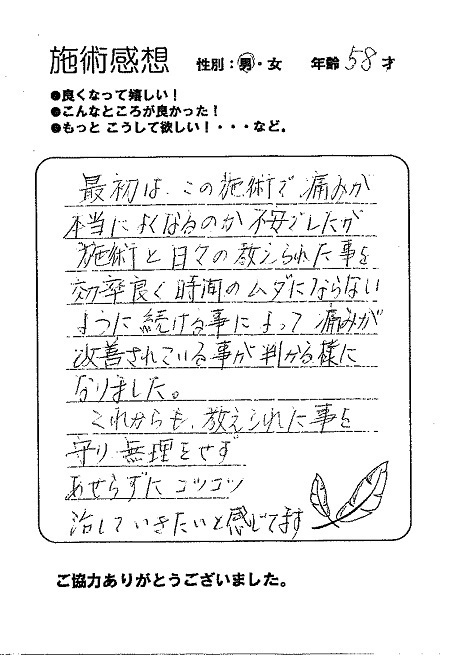 施術感想 性別：男・女 年齢 58才
●良くなって嬉しい！
●こんなところが良かった！
●もっと こうして欲しい！・・・など。
最初は、この施術で痛みが
本当によくなるのか不安でしたが
施術と日々の教えられた事を
効率良く時間のムダにならない
ように続ける事によって痛みが
改善されている事が判かる様に
なりました。
これからも、教えられた事を
守り無理をせず
あせらずにコツコツ
治していきたいと感じてます
ご協力ありがとうございました。